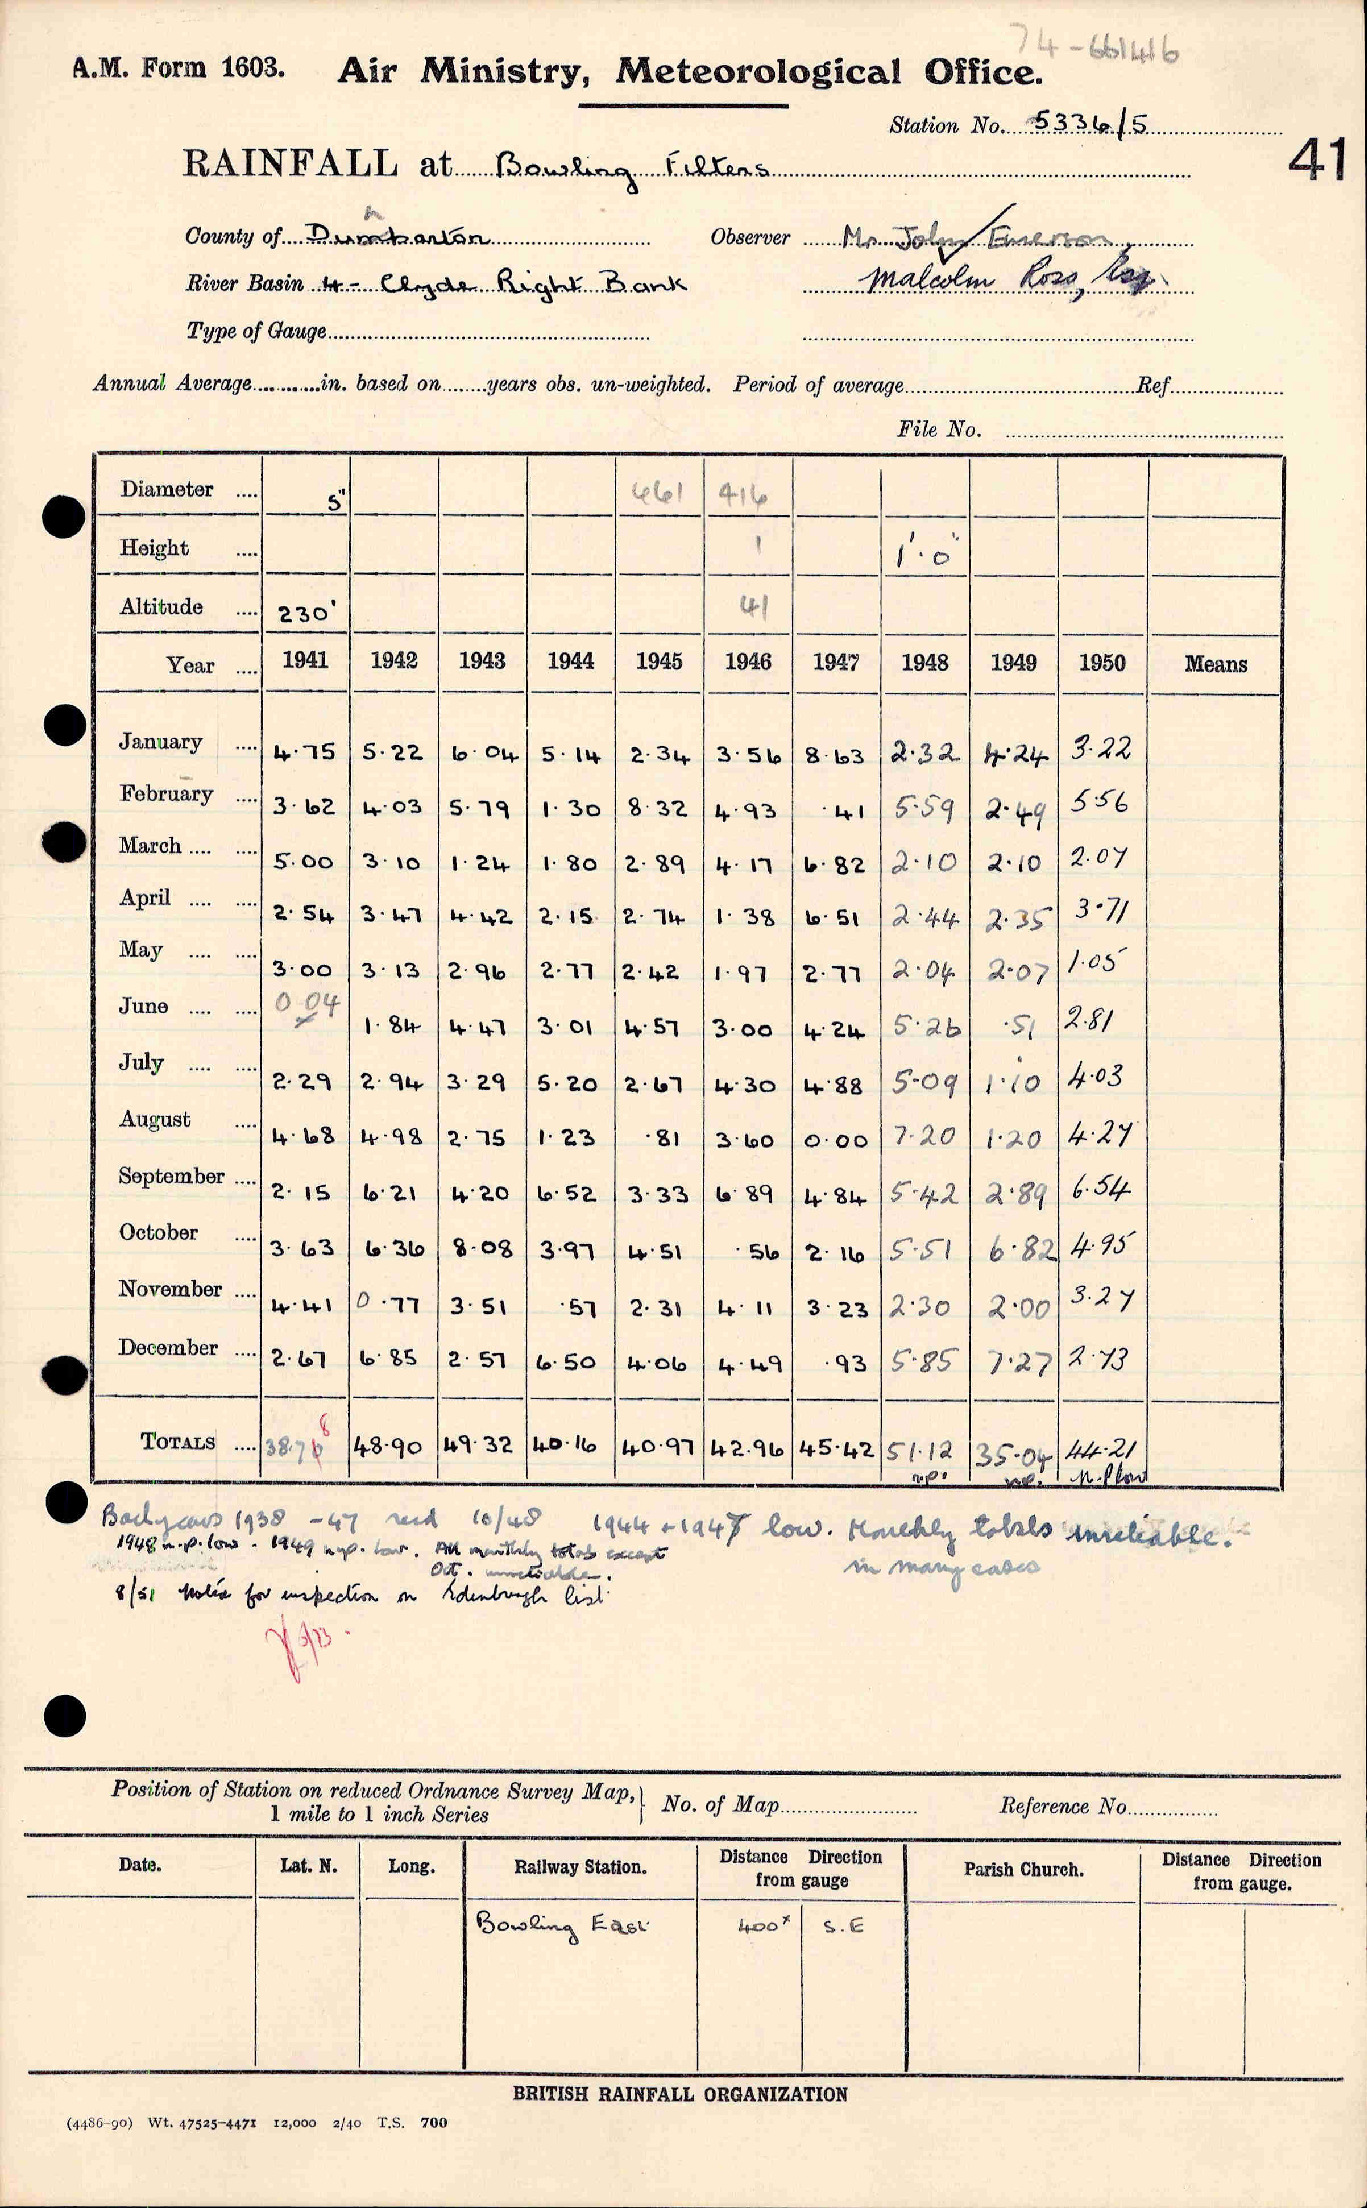 74-661416
A.M. Form 1603. Air Ministry, Meteorological Office.
Station No. 5336/5
41
RAINFALL at Bowling Filters
n
County of Dumbarton Observer Mr John Emerson,
River Basin 4 - Clyde Right Bank Malcolm Ross, Esq
Type of Gauge
Annual Average in. based on years obs. un-weighted. Period of average Ref.
File No.
Diameter .... 5" 661 416
Height .... 1 1'.0"
Altitude .... 230' 41
Year .... 1941 1942 1943 1944 1945 1946 1947 1948 1949 1950 Means
January .... 4.75 5.22 6.04 5.14 2.34 3.56 8.63 2.32 4.24 3.22
February .... 3.62 4.03 5.79 1.30 8.32 4.93 .41 5.59 2.49 5.56
March .... .... 5.00 3.10 1.24 1.80 2.89 4.17 6.82 2.10 2.10 2.07
April .... .... 2.54 3.47 4.42 2.15 2.74 1.38 6.51 2.44 2.35 3.71
May .... .... 3.00 3.13 2.96 2.77 2.42 1.97 2.77 2.04 2.07 1.05
June .... .... 0.04 1.84 4.47 3.01 4.57 3.00 4.24 5.26 .51 2.81
July .... .... 2.29 2.94 3.29 5.20 2.67 4.30 4.88 5.09 1.10 4.03
August .... 4.68 4.98 2.75 1.23 .81 3.60 0.00 7.20 1.20 4.27
September .... 2.15 6.21 4.20 6.52 3.33 6.89 4.84 5.42 2.89 6.54
October .... 3.63 6.36 8.08 3.97 4.51 .56 2.16 5.51 6.82 4.95
November .... 4.41 0.77 3.51 .57 2.31 4.11 3.23 2.30 2.00 3.27
December .... 2.67 6.85 2.57 6.50 4.06 4.49 .93 5.85 7.27 2.73
TOTALS .... 38.78 48.90 49.32 40.16 40.97 42.96 45.42 51.12 35.04 44.21
n.p. n.p. n.p. low
Back years 1938 - 47 recd 10/48 1944 + 1947 low. Monthly totals unreliable.
in many cases
1948 n.p. low. 1949 n.p. low. All monthly totals except
Oct. unreliable.
8/51 Noted for inspection on Edinburgh list
Position of Station on reduced Ordnance Survey Map, 1 mile to 1 inch Series No. of Map Reference No.
Date. Lat. N. Long. Railway Station. Distance Direction from gauge Parish Church. Distance Direction from gauge.
Bowling East 400x S.E
BRITISH RAINFALL ORGANIZATION
(4486-90) Wt. 47525-4471 12,000 2/40 T.S. 700